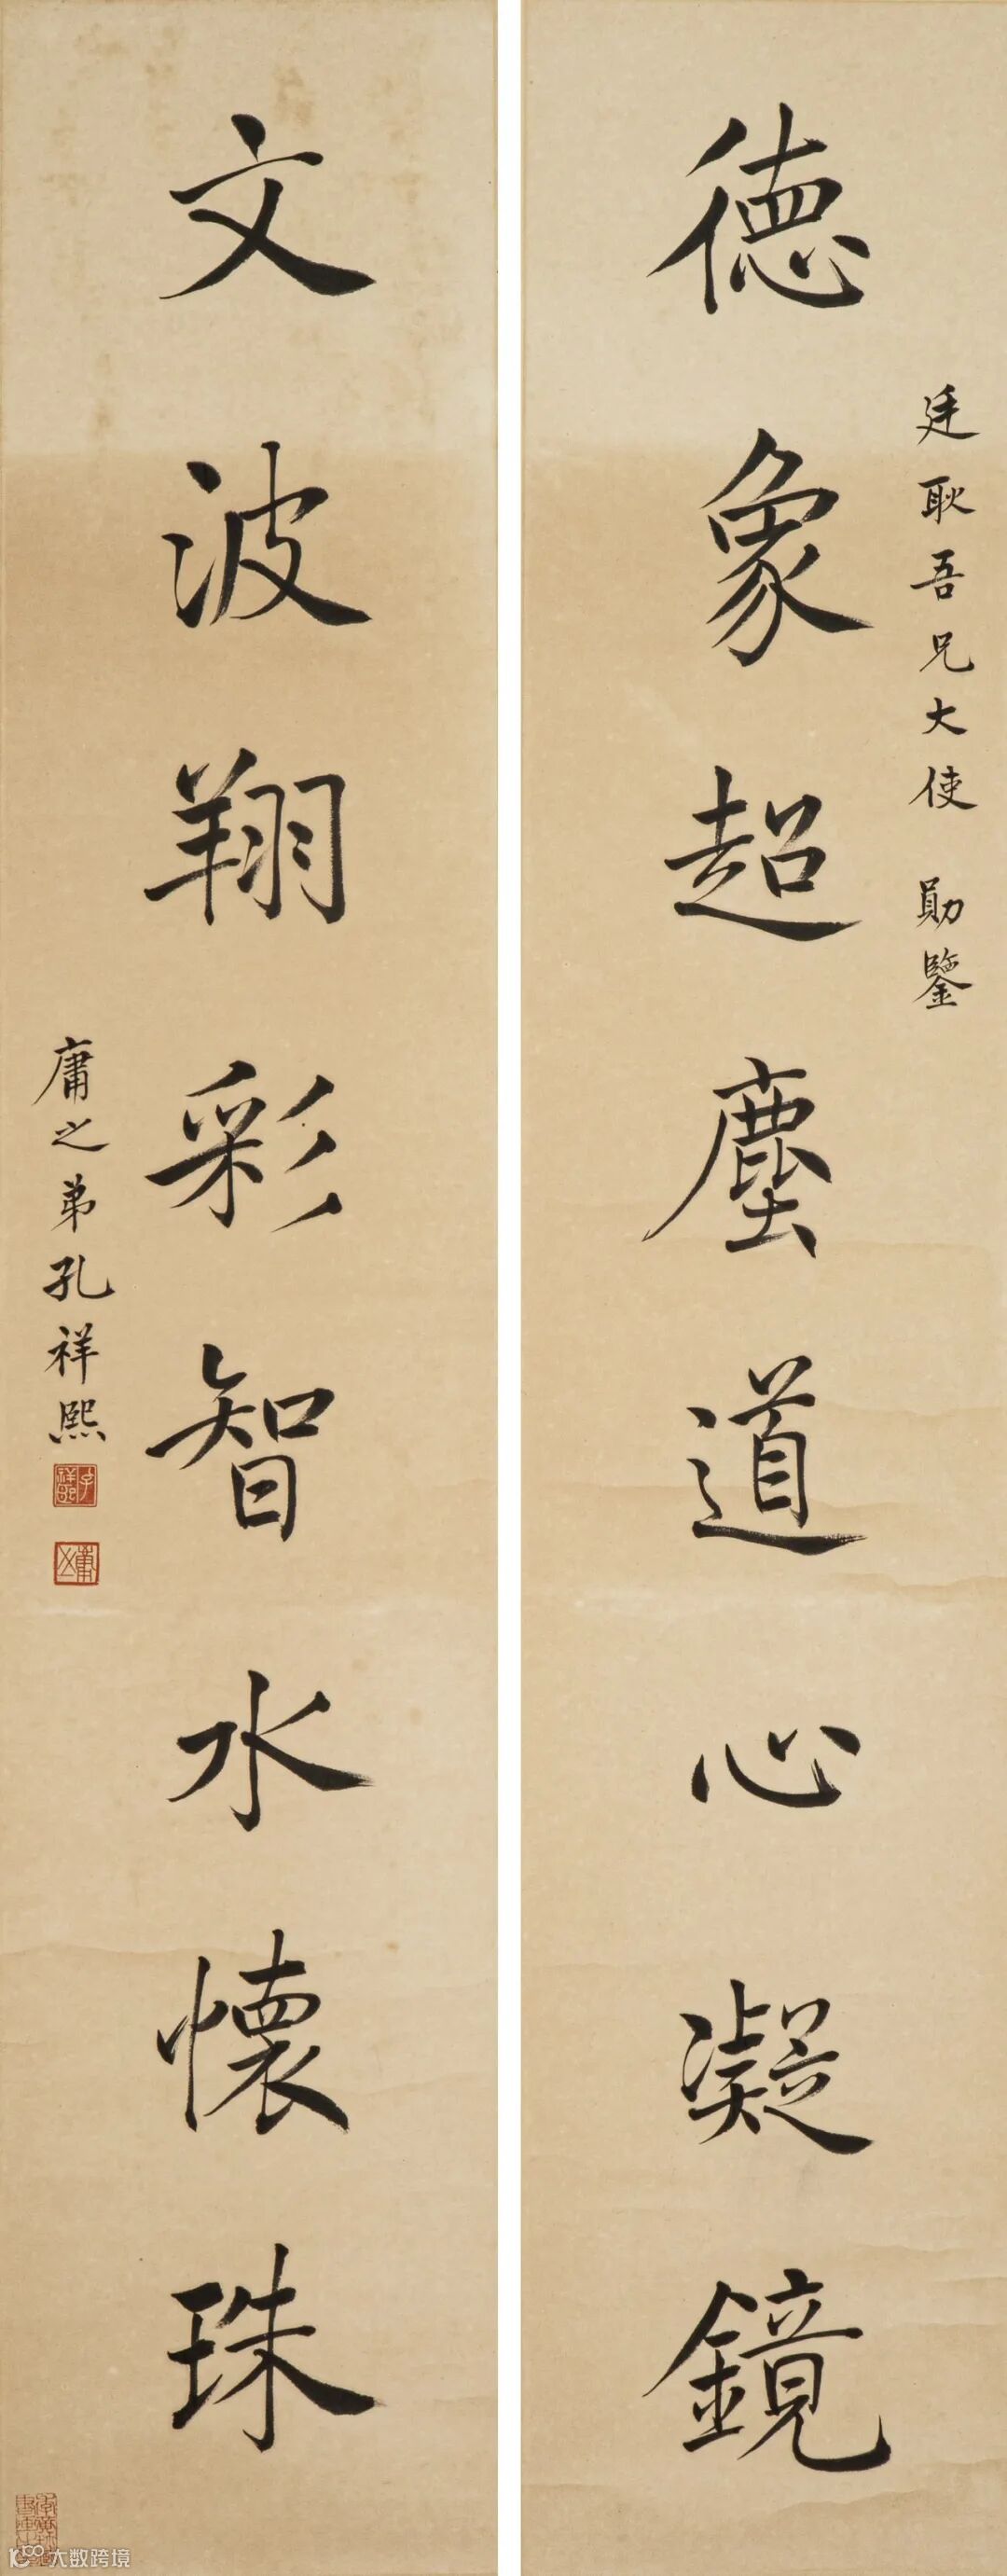 廷耿吾兄大使 勛鑒
德象超塵道心凝鏡
文波翔彩智水懷珠
庸之弟孔祥熙
大数跨境